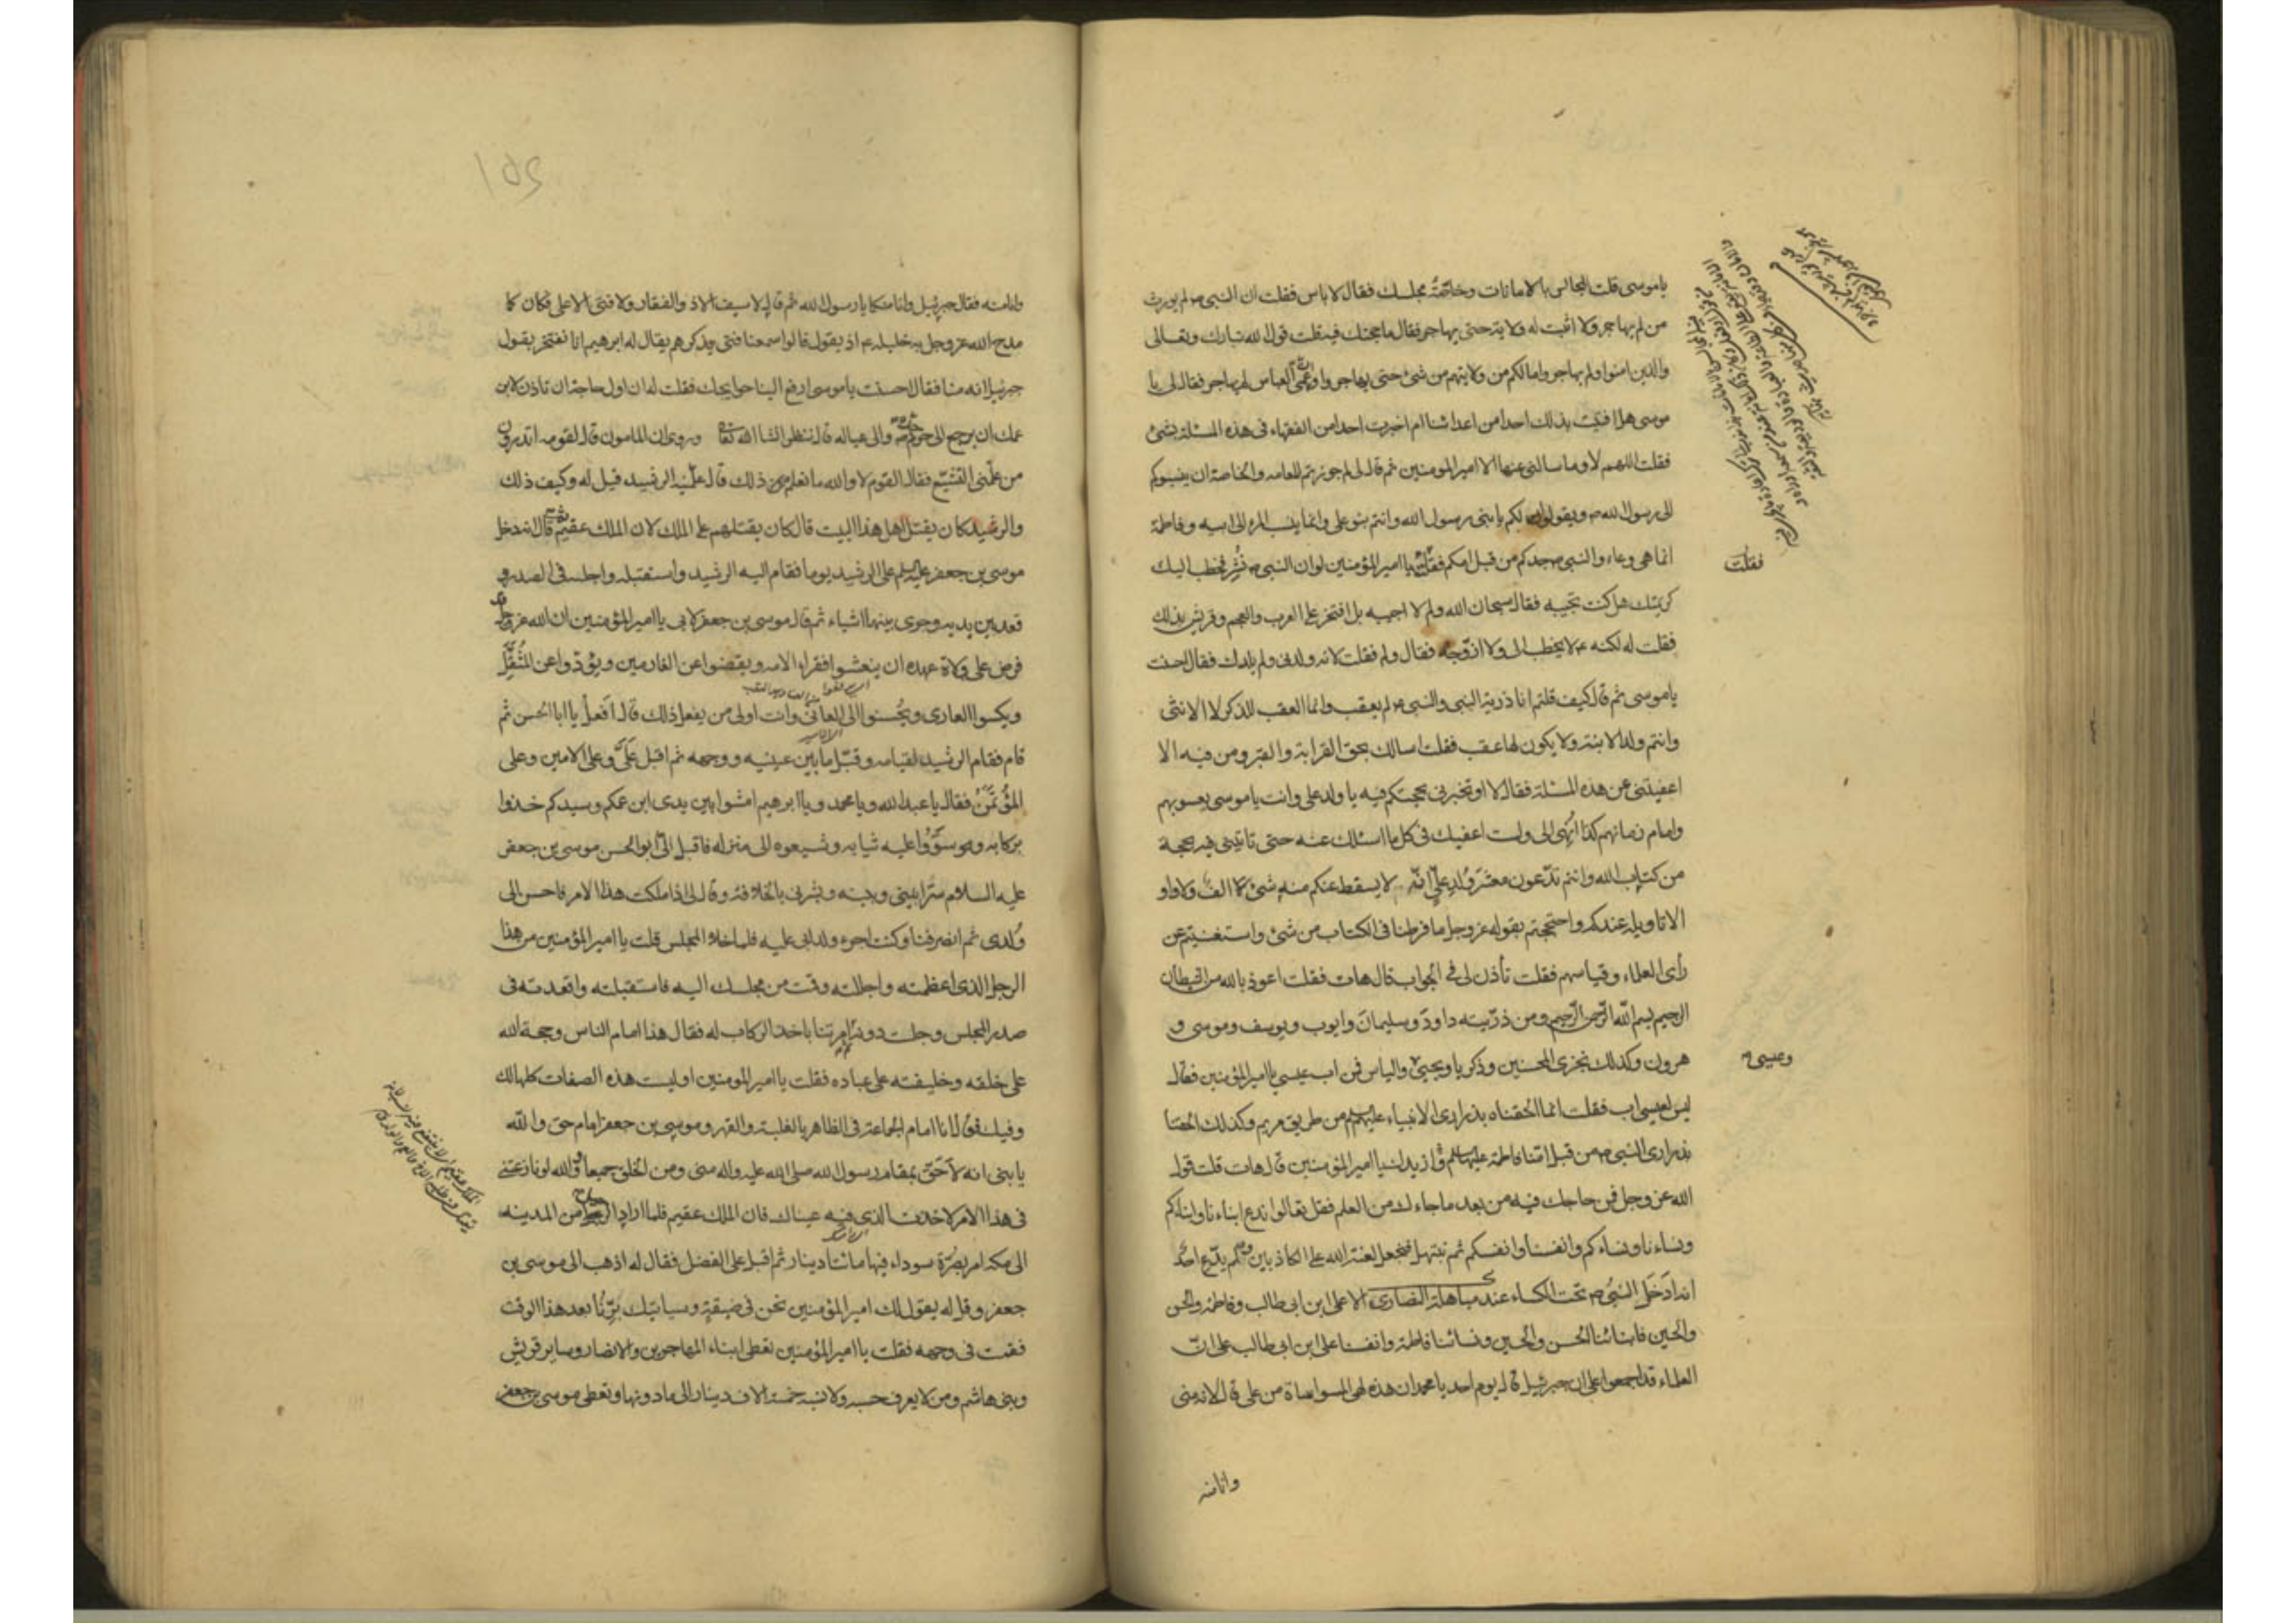 ياموسى قلت المجالس بالامانات وخاصّةً مجلسك فقال لا باس فقلت ان النبى ص لم يورث
من لم يهاجر ولا اثبت له ولاية حتى يهاجر فقال ما حجتك فيه قلت قول الله تبارك وتعالى
والذين امنوا ولم يهاجروا مالكم من ولايتهم من شئ حتى يهاجروا وان عمّى العباس لم يهاجر فقال لى يا
موسى هل افتيت بذلك احدا من اعدائنا ام اخبرت احدا من الفقهاء فى هذه المسئلة بشئ
فقلت اللهم لا وما سالنى عنها الا امير المومنين ثم قال لى لم جوزتم للعامه والخاصة ان ينسبوكم
الى رسول الله ص ويقولوا لكم يا بنى رسول الله وانتم بنو على وانما ينسب المرء الى ابيه وفاطمة
انما هى وعاء والنبى ص جدكم من قبل امكم فقلت يا امير المؤمنين لو ان النبى ص نُشِر فخطب اليك
كريمتك هل كنت تجيبه فقال سبحان الله ولم لا اجيبه بل افتخر على العرب والعجم وقريش بذلك
فقلت له لكنه ع لا يخطب الى ولا ازوّجه فقال ولم فقلت لانه ولدنى ولم يلدك فقال احسنت
ياموسى ثم قال كيف قلتم انا ذرية النبى والنبى ص لم يعقب وانما العقب للذكر لا الانثى
وانتم ولد الابنة ولا يكون لها عقب فقلت اسالك بحق القرابة والقبر ومن فيه الا
اعفيتنى عن هذه المسئلة فقال لا او تخبرنى بحجتكم فيه يا ولد على وانت ياموسى يعسوبهم
وامام زمانهم كذا اُنهى الى ولست اعفيك فى كل ما اسئلك عنه حتى تاتينى فيه بحجة
من كتاب الله وانتم تدّعون معشر وُلد علىّ انّه لا يسقط عنكم منه شئ لا الف ولا واو
الا تاويله عندكم واحتججتم بقوله عز وجل ما فرطنا فى الكتاب من شئ واستغنيتم عن
رأى العلماء وقياسهم فقلت تأذن لى فى الجواب قال هات فقلت اعوذ بالله من الشيطان
الرجيم بسم اللّه الرّحمن الرّحيم ومن ذرّيته داودَ وسليمانَ وايوب ويوسف وموسى و
هرون وكذلك نجزى المحسنين وذكريا ويحيى والياس فمن اب عيسى يا امير المؤمنين فقال
ليس لعيسى اب فقلت انما الحقناه بذرارى الانبياء عليهم السلم من طريق مريم وكذلك الحقنا
بذرارى النبى ص من قبل امّنا فاطمة عليها السلم أازيدك يا امير المؤمنين قال هات قلت قول
الله عز وجل فمن حاجك فيه من بعد ما جاءك من العلم فقل تعالوا ندع ابناءنا وابناءكم
ونساءنا ونساءكم وانفسنا وانفسكم ثم نبتهل فنجعل لعنة الله على الكاذبين ولم يدّع احدٌ
انه ادخَلَ النبىُّ ص تحت الكساء عند مباهلة النصارى الا على ابن ابى طالب وفاطمة والحسن
والحسين فابنائنا الحسن والحسين ونسائنا فاطمة وانفسنا على ابن ابى طالب على انّ
العلماء قد اجمعوا على ان جبرئيل قال يوم احد يا محمد ان هذه لهى المواساة من على قال لانه منى
وانا منه
فقلت
وعيسى
وانا منه فقال جبرئيل وانا منكما يا رسول الله ثم قال لا سيف الا ذو الفقار ولا فتى الا على فكان كما
مدح الله عز وجل به خليله ع اذ يقول قالوا سمعنا فتى يذكرهم يقال له ابرهيم انا نفتخر بقول
جبرئيل انه منا فقال احسنت ياموسى ارفع الينا حوايجك فقلت له ان اول حاجة ان تاذن لابن
عمك ان يرجع الى حرم جده ص والى عياله قال ننظر انشا الله تعا وروى ان المامون قال لقومه اتدرون
من علّمنى التشيّع فقال القوم لا والله ما نعلم ذلك قال علّمنيه الرشيد قيل له وكيف ذلك
والرشيد كان يقتل اهل هذا البيت قال كان يقتلهم على الملك لان الملك عقيم ثم قال انه دخل
موسى بن جعفر عليه السلم على الرشيد يوما فقام اليه الرشيد واستقبله واجلسه فى الصدر و
قعد بين يديه وجرى بينهما اشياء ثم قال موسى بن جعفر لابى يا امير المؤمنين ان الله عز وجل
فرض على ولاة عهده ان ينعشوا فقراء الامه ويقضوا عن الغارمين ويؤدّوا عن المُثقَّل
ويكسوا العارى ويحُسنوا الى العانى وانت اولى من يفعل ذلك قال اَفعلُ يا ابا الحسن ثم
قام فقام الرشيد لقيامه وقبّل ما بين عينيه ووجهه ثم اقبل عَلَىَّ وعلى الامين وعلى
المؤتَمَن فقال يا عبد الله ويا محمد ويا ابرهيم امشوا بين يدى ابن عمكم وسيدكم خذوا
بركابه وسوّوا عليه ثيابه وشيعوه الى منزله فاقبل الىّ ابو الحسن موسى بن جعفر
عليه السلام سرا بينى وبينه وبشرنى بالخلافة وقال لى اذا ملكت هذا الامر فاحسن الى
وُلدى ثم انصرفنا وكنت اجرء ولد ابى عليه فلما خلا المجلس قلت يا امير المؤمنين من هذا
الرجل الذى اعظمته واجللته وقمت من مجلسك اليه فاستقبلته واقعدته فى
صدر المجلس وجلست دونه ثم امرتنا باخذ الركاب له فقال هذا امام الناس وحجة الله
على خلقه وخليفته على عباده فقلت يا امير المومنين اوليست هذه الصفات كلها لك
وفيك فقال انا امام الجماعة فى الظاهر بالغلبة والقهر وموسى بن جعفر امام حق واللّه
يا بنى انه لاَحَقّ بمقام رسول الله صلى الله عليه واله منى ومن الخلق جميعا والله لو نازعتنى
فى هذا الامر لاخذت الذى فيه عيناك فان الملك عقيم فلما اراد الرحيل من المدينه
الى مكه امر بصُرّة سوداء فيها مائتا دينار ثم اقبل على الفضل فقال له اذهب الى موسى بن
جعفر وقل له يقول لك امير المؤمنين نحن فى ضيقة وسياتيك برّنُا بعد هذا الوقت
فقمت فى وجهه فقلت يا امير المؤمنين تعطى ابناء المهاجرين والانصار وساير قريش
وبنى هاشم ومن لا يعرف حسبه ولا نسبه خمسة الاف دينار الى ما دونها وتعطى موسى بن جعفر